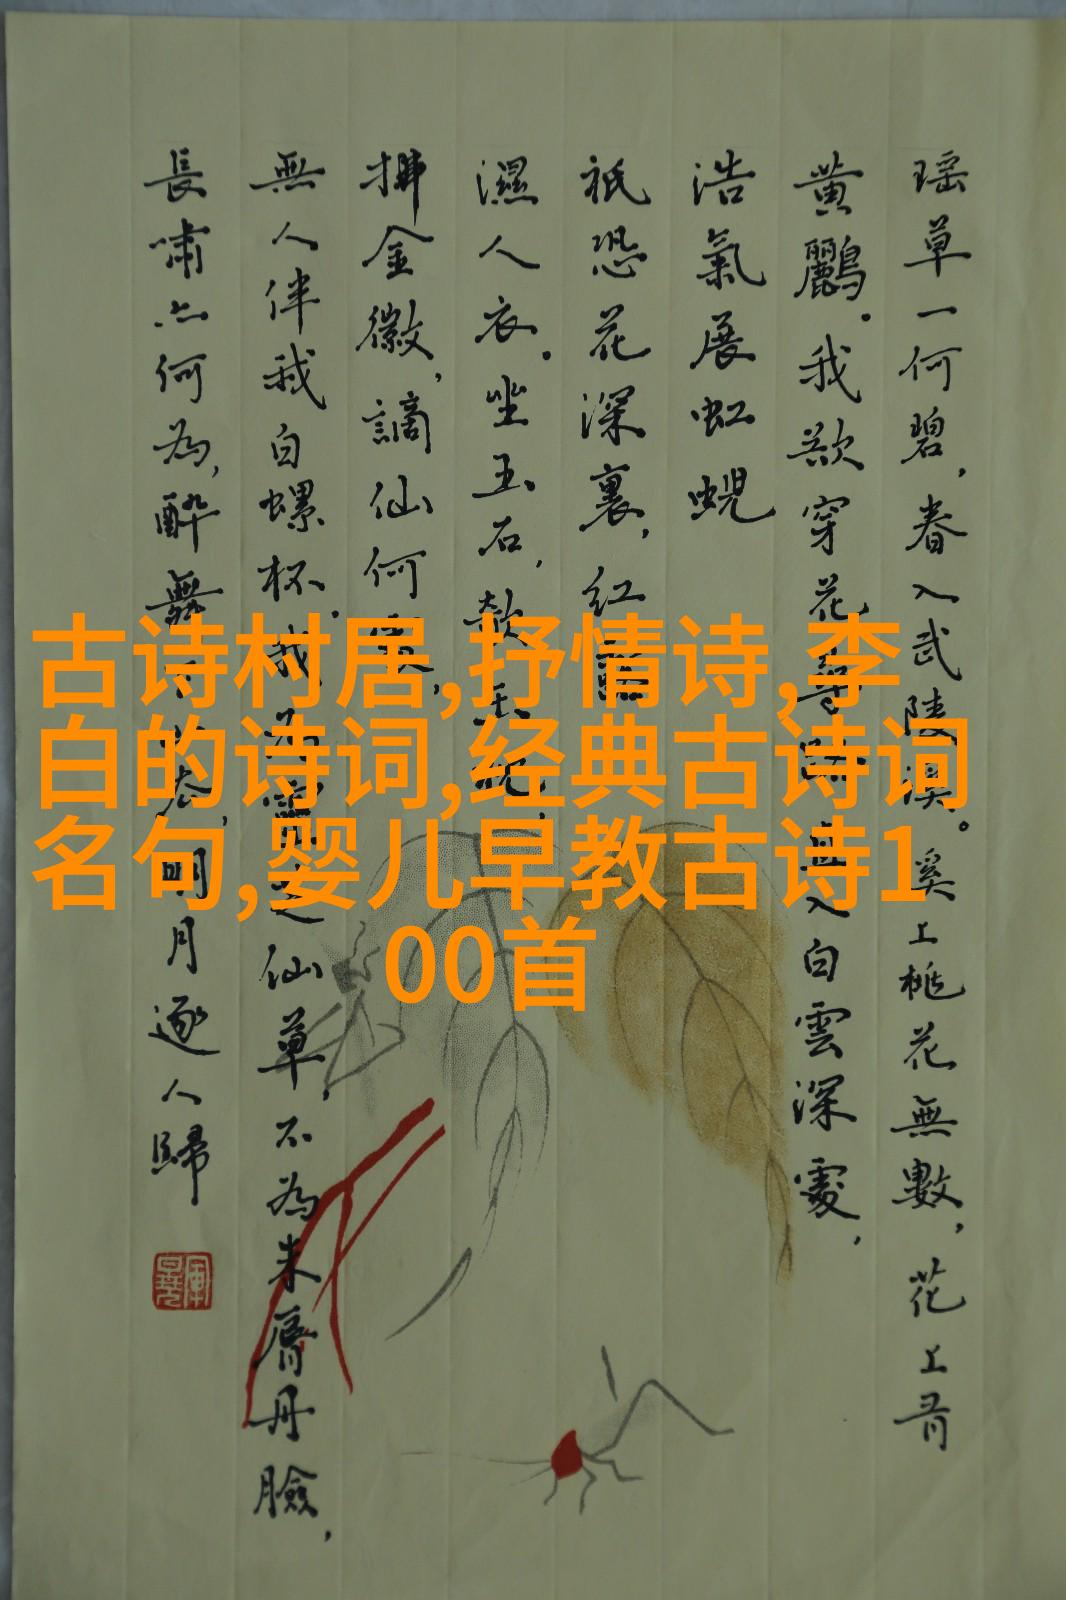 古诗村居,抒情诗,李
白的诗词,经典古诗词
名句,婴儿早教古诗1
00首
瑶草一何碧，春入武陵溪。溪上桃花無數，花上有
黄鸝。我欲穿花尋路，直入白雲深處，
浩氣展虹蜺
祇恐花深裏，紅露
濕人衣。坐玉石，欹玉枕，
拂金徽，謫仙何處，
無人伴我白螺杯。我為靈芝仙草，不為朱脣丹臉，
長嘯亦何為，醉舞下山去，明月逐人歸